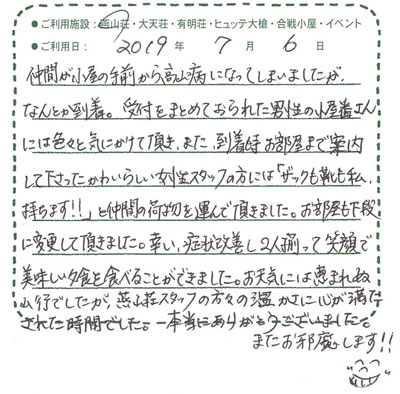 ●ご利用施設：燕山荘・大天荘・有明荘・ヒュッテ大槍・合戦小屋・イベント
●ご利用日： 2019 年 7 月 6 日
仲間が小屋の手前から高山病になってしまいましたが、
なんとか到着。受付をまとめておられた男性の小屋番さん
には色々と気にかけて頂き、また、到着時お部屋まで案内
して下さったかわいらしい女性スタッフの方には「ザックも靴も私、
持ちます!!」と仲間の荷物を運んで頂きました。お部屋も下段
に変更して頂きました。幸い、症状改善し2人揃って笑顔で
美味しい夕食を食べることができました。お天気には恵まれぬ
山行でしたが、燕山荘スタッフの方々の温かさに心が満た
された時間でした。本当にありがとうございました。
またお邪魔します!!